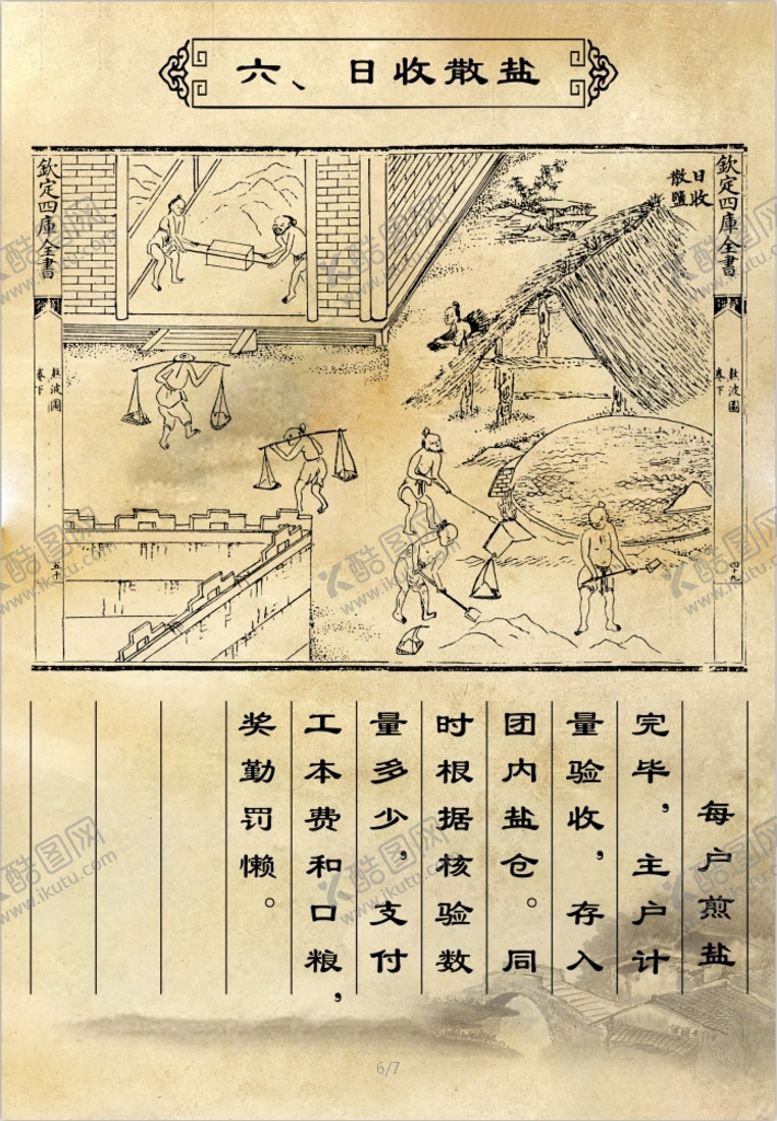 六、日收散盐
日收
散鹽
欽定四庫全書
卷下
熬波圖
四十九
欽定四庫全書
卷下
熬波圖
五十
每户煎盐
完毕，主户计
量验收，存入
团内盐仓。同
时根据核验数
量多少，支付
工本费和口粮，
奖勤罚懒。
6/7
酷图网
www.ikutu.com